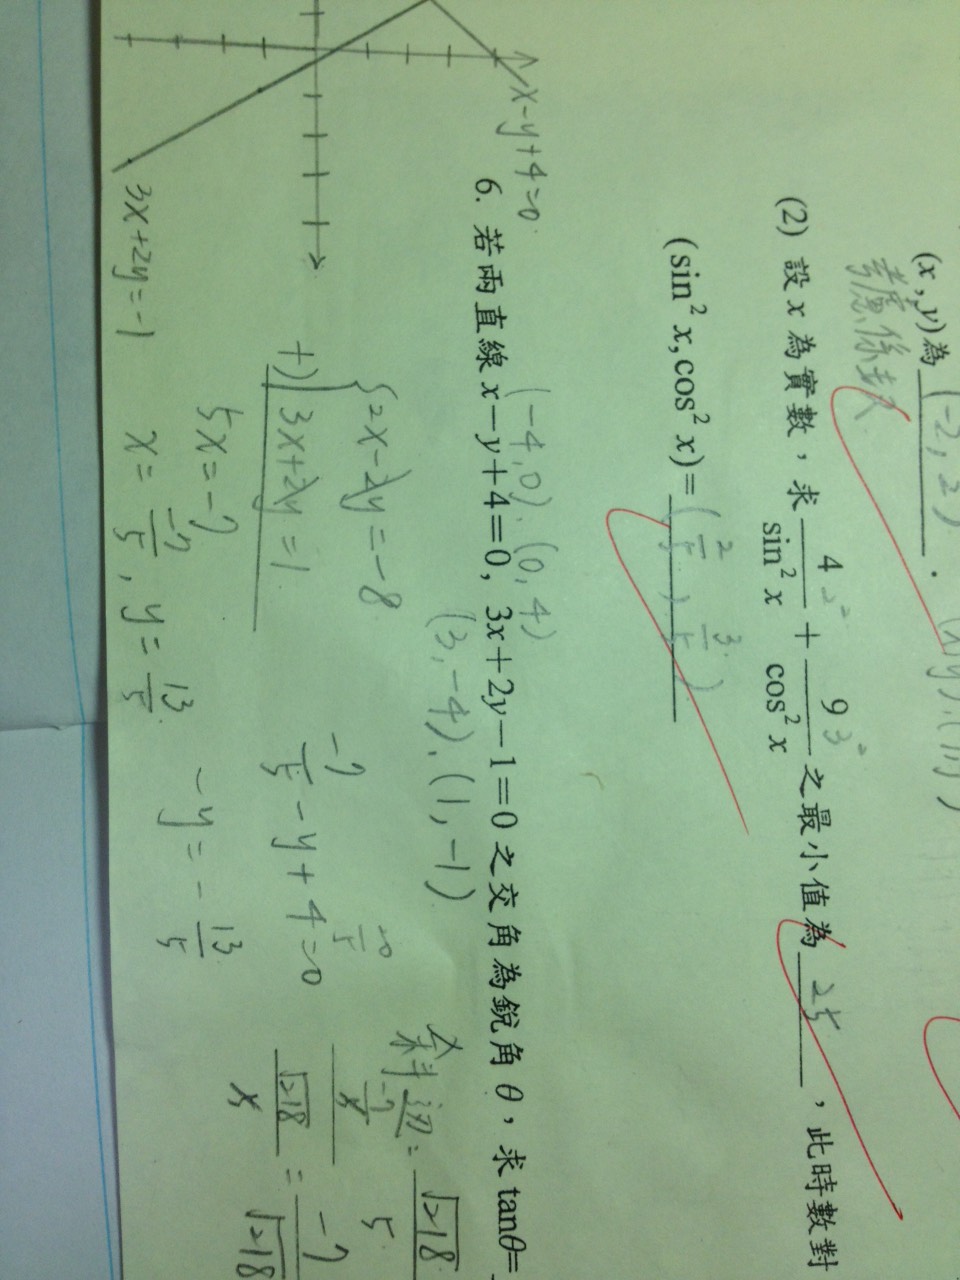 (x,y)為 (-2,2).
考慮係數
(2) 設 x 為實數，求 4/sin² x + 9/cos² x 之最小值為 25，此時數對
2² 3²
(sin² x,cos² x)= (2/5, 3/5)
(-4,0).(0,4)
6. 若兩直線 x-y+4=0, 3x+2y-1=0 之交角為銳角 θ，求 tanθ=
(3,-4).(1,-1)
x-y+4=0
3x+2y=-1
{2x-2y=-8
+) 3x+2y=1
5x=-7
x= -7/5, y= 13/5
-7/5 -y+4=0
20/5
-y=- 13/5
斜邊= √218/5
-7/5
√218/5 = -7/√218